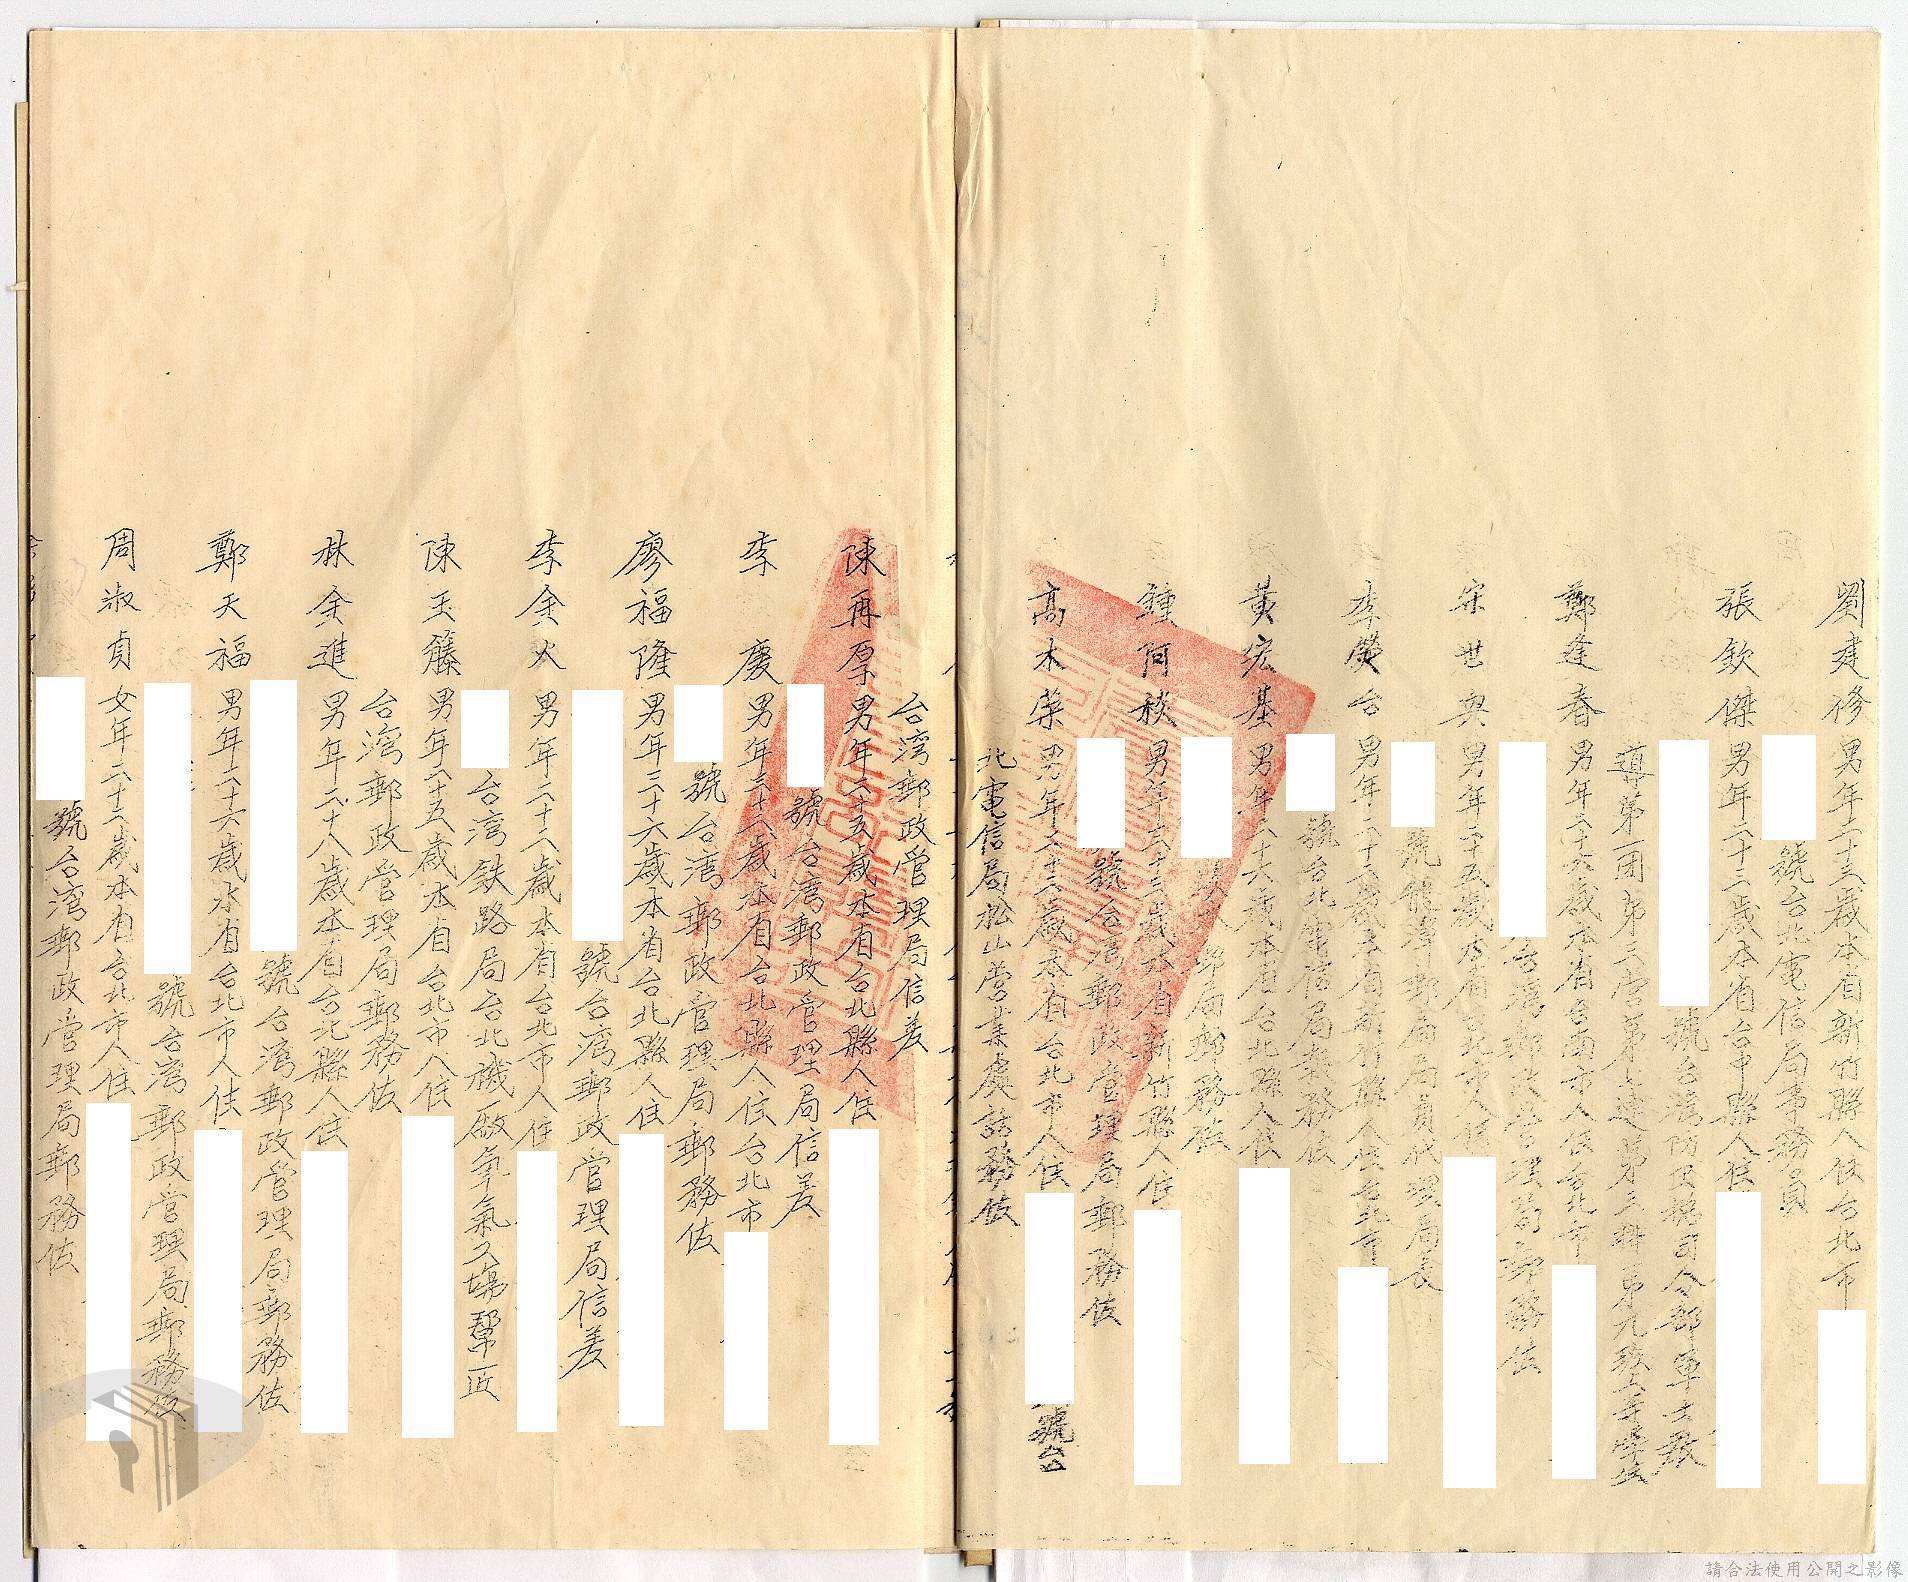 劉建修 男年二十三歲本省新竹縣人住台北市
號台北電信局事務員
張欽傑 男年二十三歲本省台中縣人住
號台灣防衛總司令部軍士教
導第一團第三營第七連第三排第九班上等學兵
鄭逢春 男年二十六歲本省台南市人住台北市
宋世興 男年二十五歲本省台北市人住
台灣郵政管理局郵務佐
李熒台 男年二十八歲本省新竹縣人住台北市
號龍潭郵局局員代理局長
黃宏基 男年二十六歲本省台北縣人住
號台北電信局報務佐
鍾阿秋 男年二十三歲本省新竹縣人住
郵局郵務佐
號台灣郵政管理局郵務佐
高木榮 男年二十二歲本省台北市人住
號台
北電信局松山營業處話務佐
台灣郵政管理局信差
陳再厚 男年二十五歲本省台北縣人住
號台灣郵政管理局信差
李 慶 男年三十六歲本省台北縣人住台北市
號台灣郵政管理局郵務佐
廖福隆 男年三十六歲本省台北縣人住
號台灣郵政管理局信差
李金火 男年二十二歲本省台北市人住
台灣鉄路局台北機廠氧氣工場幫匠
陳玉籐 男年二十五歲本省台北市人住
台灣郵政管理局郵務佐
林金進 男年二十八歲本省台北縣人住
號台灣郵政管理局郵務佐
鄭天福 男年二十六歲本省台北市人住
號台灣郵政管理局郵務佐
周淑貞 女年二十二歲本省台北市人住
號台灣郵政管理局郵務佐
請合法使用公開之影像